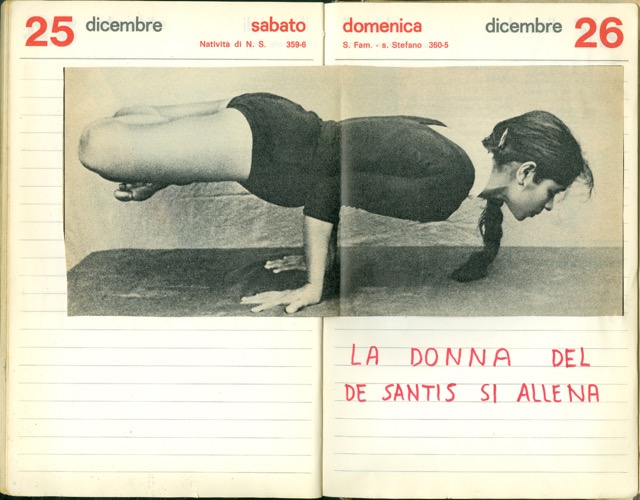 25 dicembre sabato
Natività di N. S. 359-6
domenica dicembre 26
S. Fam. - s. Stefano 360-5
LA DONNA DEL
DE SANTIS SI ALLENA